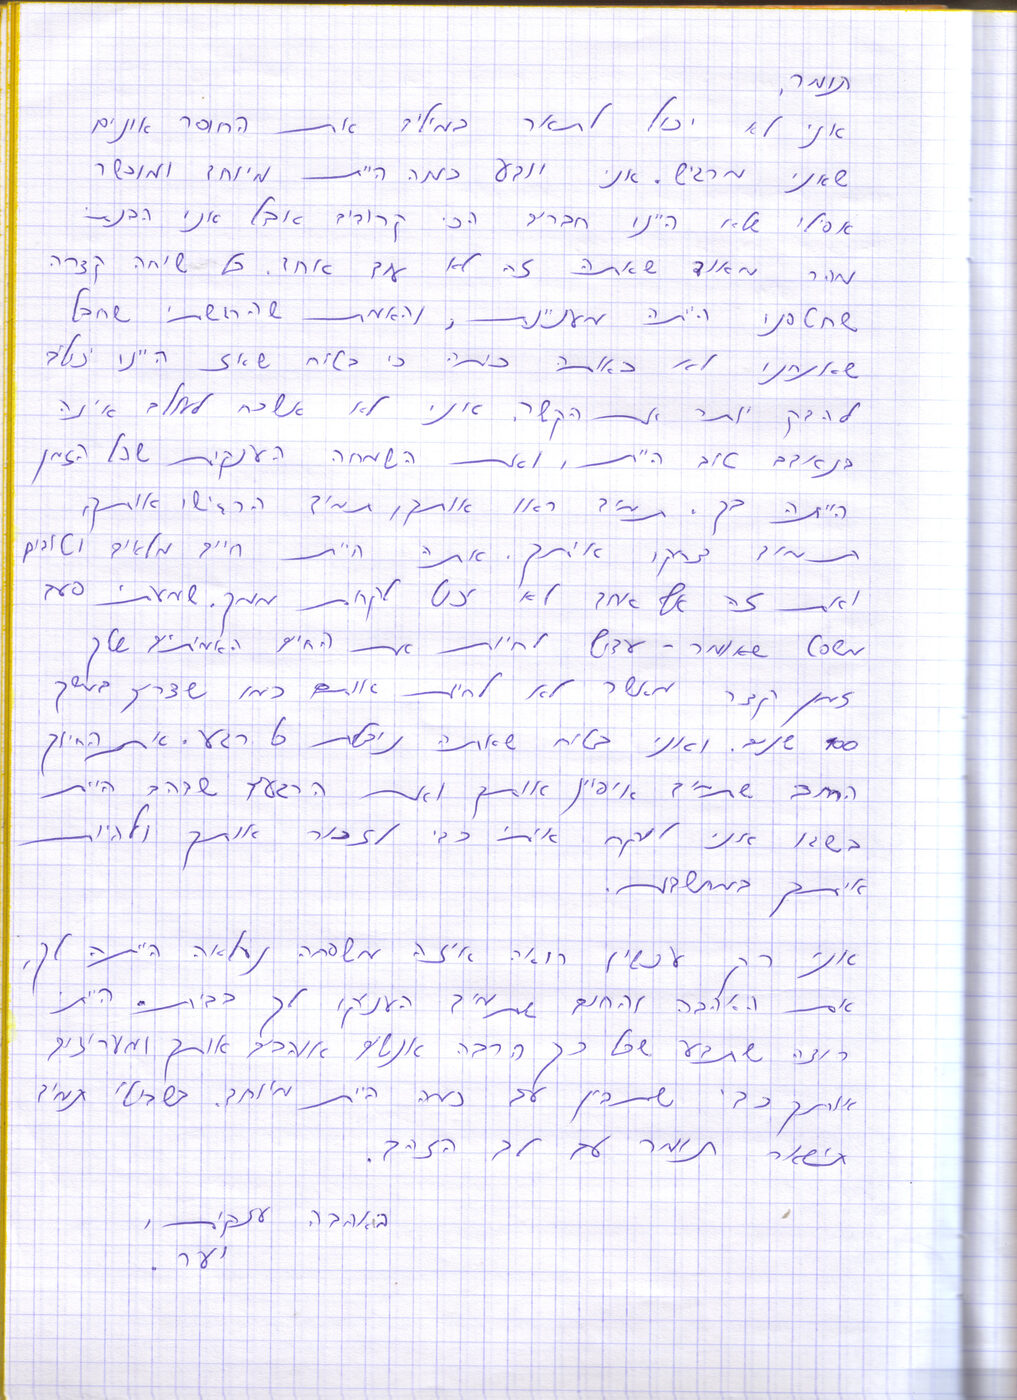 תומר,
אני לא יכול לתאר במילים את החוסר אונים
שאני מרגיש. אני יודע כמה היית מיוחד ומוכשר
אפילו שלא היינו חברים הכי קרובים אבל אני הבנתי
מהר מאוד שאתה זה לא עוד אחד. כל שיחה קצרה
שחטפנו היתה מעניינת, והאמת שהרגשתי שחבל
שאנחנו לא באותה כיתה כי בטוח שאז היינו יכולים
להדק יותר את הקשר. אני לא אשכח לעולם איזה
בנאדם טוב היית, ואת השמחה הענקית שכל הזמן
הייתה בך. תמיד ראו אותך, תמיד הרגישו אותך,
תמיד צחקו איתך. אתה היית חיים מלאים וטובים
ואת זה אף אחד לא יכול לקחת ממך. שמעתי פעם
משפט שאומר - עדיף לחיות את החיים האמיתיים שלך
זמן קצר מאשר לא לחיות אותם כמו שצריך במשך
100 שנים. ואני בטוח שאתה ניצלת כל רגע. את החיוך
החם שתמיד איפיין אותך ואת הרגעים שבהם היית
בשגו אני לוקח איתי כדי לזכור אותך ולהיות
איתך במחשבות.
אני רק עכשיו רואה איזה משפחה נפלאה הייתה לך,
את האהבה והחום שתמיד העניקו לך בבית. הייתי
רוצה שתדע שכל כך הרבה אנשים אוהבים אותך ומעריצים
אותך כדי שתבין עד כמה היית מיוחד. בשבילי תמיד
תישאר תומר עם לב הזהב.
באהבה ענקית,
יער.